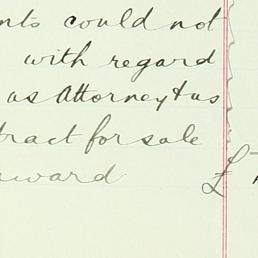 nts could not
with regard
as Attorney & as
tract for sale
ward £